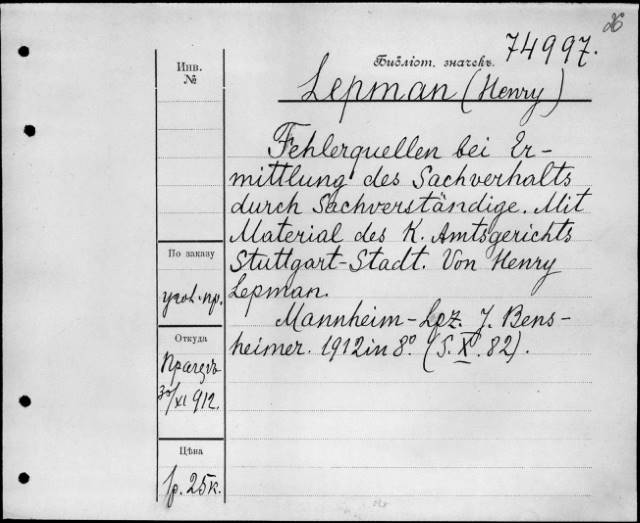 74997.
Библіот. значекъ.
Инв.
№
Lepman (Henry)
Fehlerquellen bei Er-
mittlung des Sachverhalts
durch Sachverständige. Mit
Material des K. Amtsgerichts
Stuttgart-Stadt. Von Henry
Lepman.
Mannheim-Lpz. J. Bens-
heimer. 1912 in 8° (S. X. 82).
По заказу
угол. пр.
Откуда
30/XI 912.
Цѣна
1р. 25к.